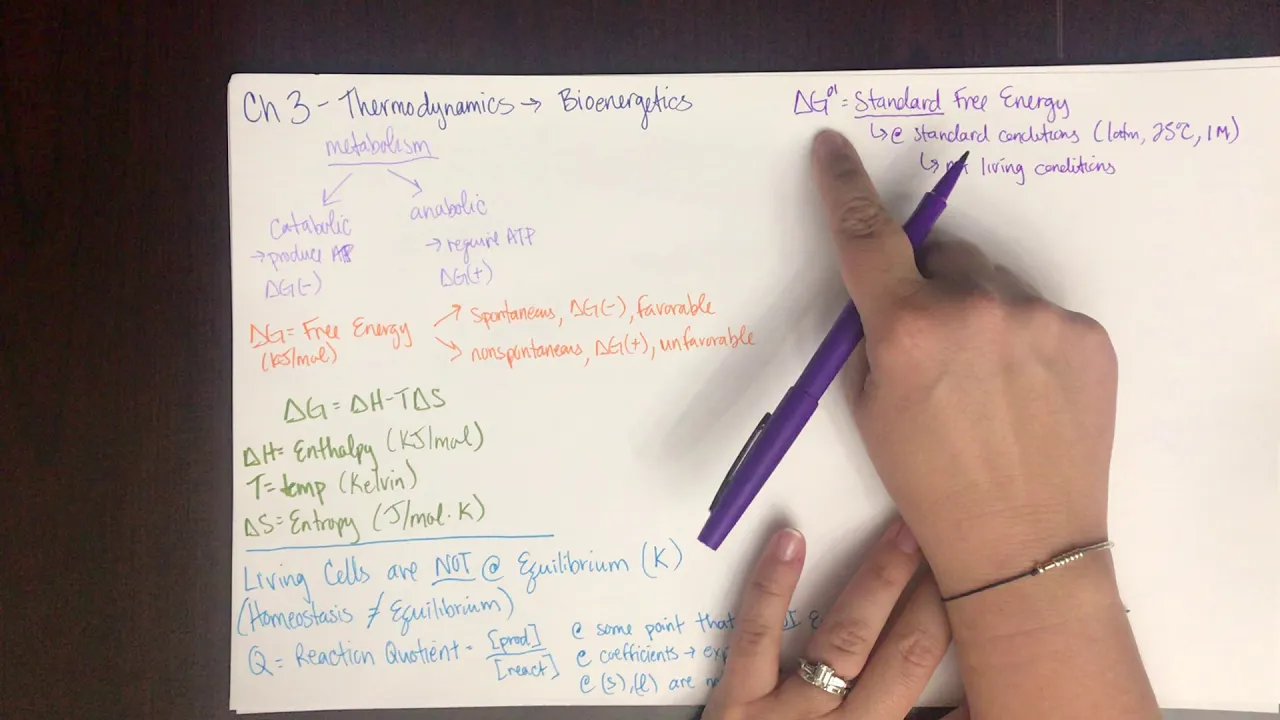 Ch 3 - Thermodynamics → Bioenergetics
metabolism
Catabolic
→ produce ATP
ΔG(-)
anabolic
→ require ATP
ΔG(+)
ΔG = Free Energy
(kJ/mol)
↗ Spontaneous, ΔG(-), favorable
↘ nonspontaneous, ΔG(+), unfavorable
ΔG = ΔH-TΔS
ΔH = Enthalpy (KJ/mol)
T = temp (Kelvin)
ΔS = Entropy (J/mol·K)
Living Cells are NOT @ Equilibrium (K)
(Homeostasis ≠ Equilibrium)
Q = Reaction Quotient = [prod]
[react]
@ some point that
@ coefficients →
@ (s), (l) are
ΔG°' = Standard Free Energy
↳ @ standard conditions (1atm, 25°C, 1M)
↳ living conditions